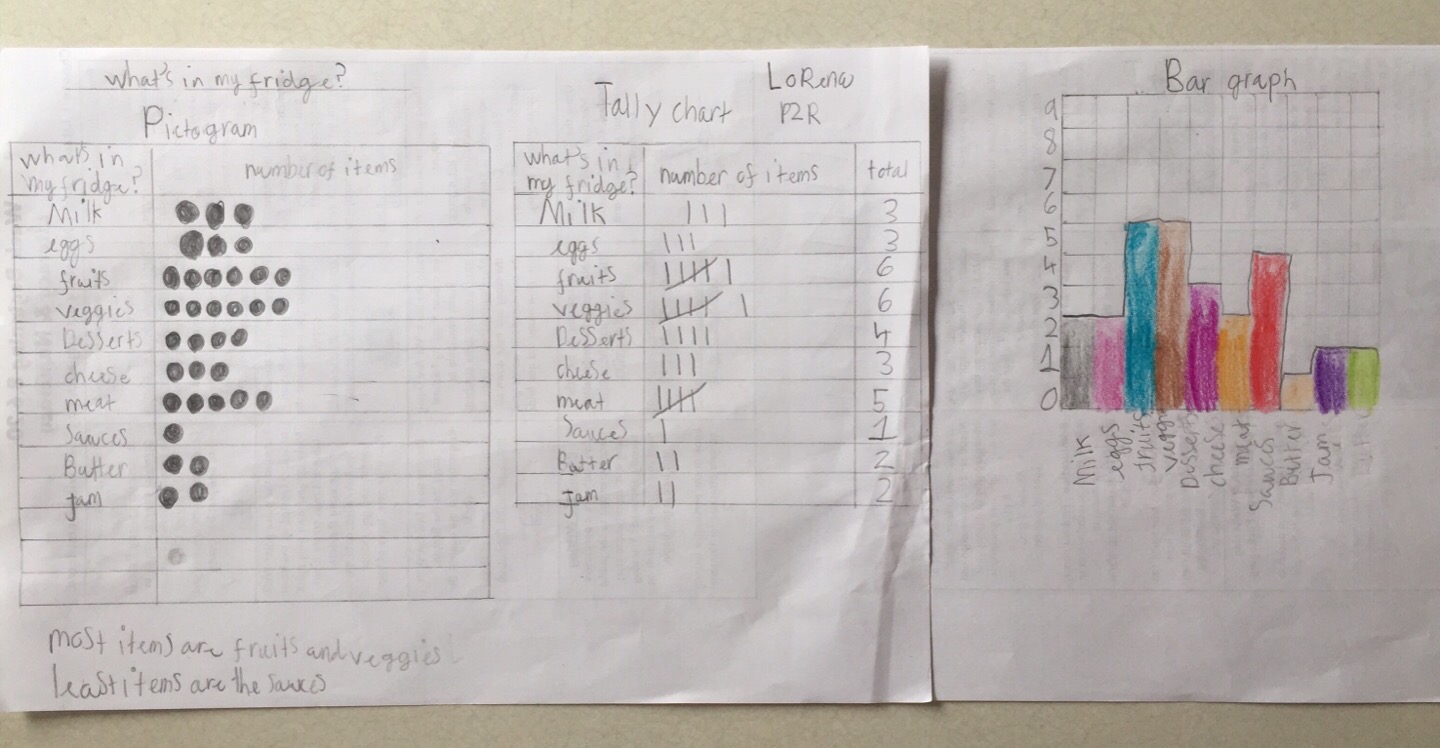 what's in my fridge?
Pictogram
what's in my fridge? number of items
Milk
eggs
fruits
veggies
Desserts
cheese
meat
Sauces
Butter
jam
most items are fruits and veggies
least items are the sauces
LoRena
Tally chart P2R
what's in my fridge? number of items total
Milk 3
eggs 3
fruits 6
veggies 6
Desserts 4
cheese 3
meat 5
Sauces 1
Batter 2
Jam 2
Bar graph
9
8
7
6
5
4
3
2
1
0
Milk
eggs
fruits
veggi
Desserts
cheese
meat
Sauces
Butter
Jam